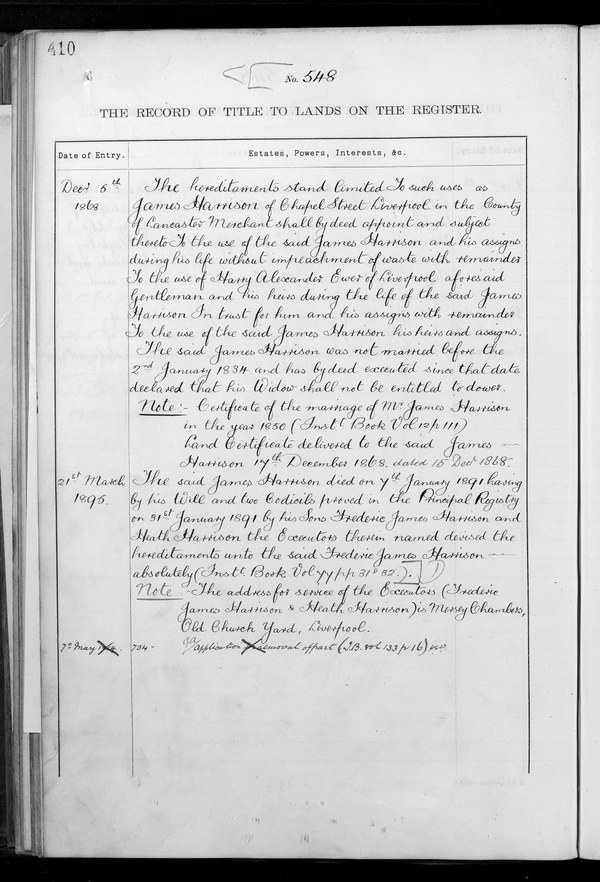 410
No. 548
THE RECORD OF TITLE TO LANDS ON THE REGISTER.
Date of Entry.
Estates, Powers, Interests, &c.
Decr 5th 1868
The hereditaments stand limited To such uses as
James Harrison of Chapel Street Liverpool in the County
of Lancaster Merchant shall by deed appoint and subject
thereto To the use of the said James Harrison and his assigns
during his life without impeachment of waste with remainder
To the use of Harry Alexander Ewer of Liverpool aforesaid
Gentleman and his heirs during the life of the said James
Harrison In trust for him and his assigns with remainder
To the use of the said James Harrison his heirs and assigns.
The said James Harrison was not married before the
2nd January 1834 and has by deed executed since that date
declared that his Widow shall not be entitled to dower.
Note:- Certificate of the marriage of Mr James Harrison
in the year 1850 (Instt Book Vol 12 p 111)
Land Certificate delivered to the said James
Harrison 17th December 1868. dated 15 Decr 1868.
21st March 1895.
The said James Harrison died on 7th January 1891 having
by his Will and two Codicils proved in the Principal Registry
on 31st January 1891 by his Sons Frederic James Harrison and
Heath Harrison the Executors therein named devised the
hereditaments unto the said Frederic James Harrison
absolutely (Instt Book Vol yy pp 31 & 32.).
Note:- The address for service of the Executors (Frederic
James Harrison & Heath Harrison) is Mersey Chambers,
Old Church Yard, Liverpool.
7th May
734 -
application
removal of part (I.B. vol 133 p 16)